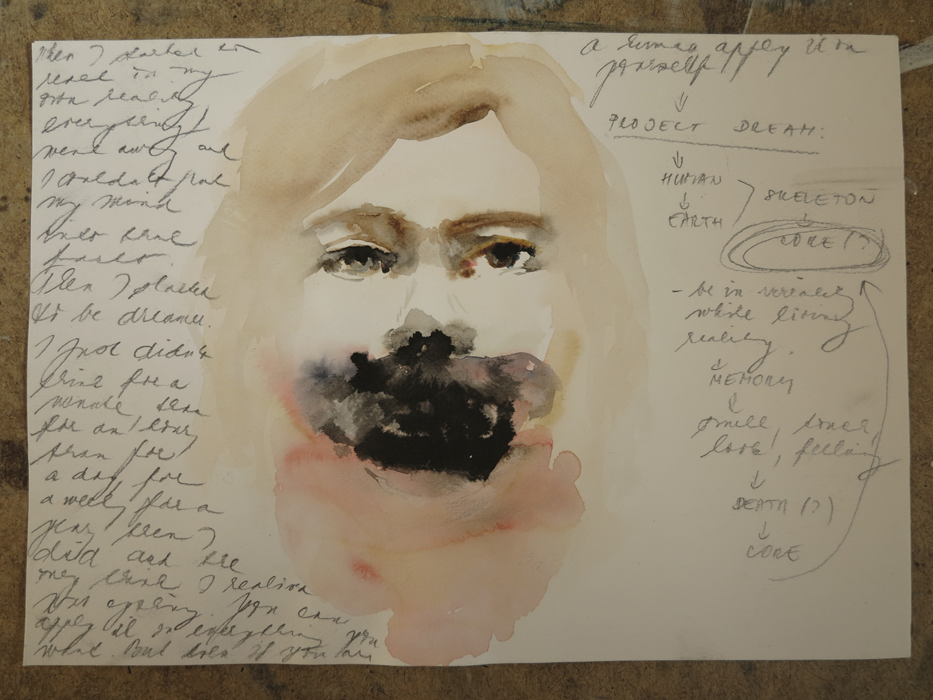 when I started to
read in my
own reality
everything
went away and
I couldn't put
my mind
into that
Then I started
to be dreamer.
I just didn't
think for a
minute then
for an hour
than for
a day for
a week for a
year then I
did and the
my I realize
was . You can
apply it in everything you
want. But even if you
a human apply it on
yourself
↓
PROJECT DREAM:
↓
HUMAN
↓
EARTH
SKELETON
↓
CORE (?)
- be in
while living
reality.
↓
MEMORY
↓
smell, touch,
look, feeling
↓
DEATH (?)
↓
CORE